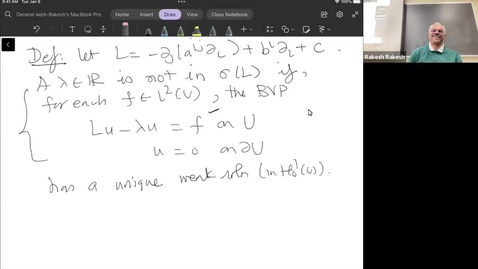 9:41 AM Tue Jan 9
General work- Rakesh's MacBook Pro
Class Notebook
Home Insert Draw View Class Notebook
Rakesh Rakesh
Def: Let L = -∂j(a^{ij}∂i) + b^i∂i + c.
A λ∈ℝ is not in σ(L) if,
for each f∈L²(U), the BVP
Lu - λu = f on U
u = 0 on ∂U
has a unique weak soln (in H₀¹(U)).